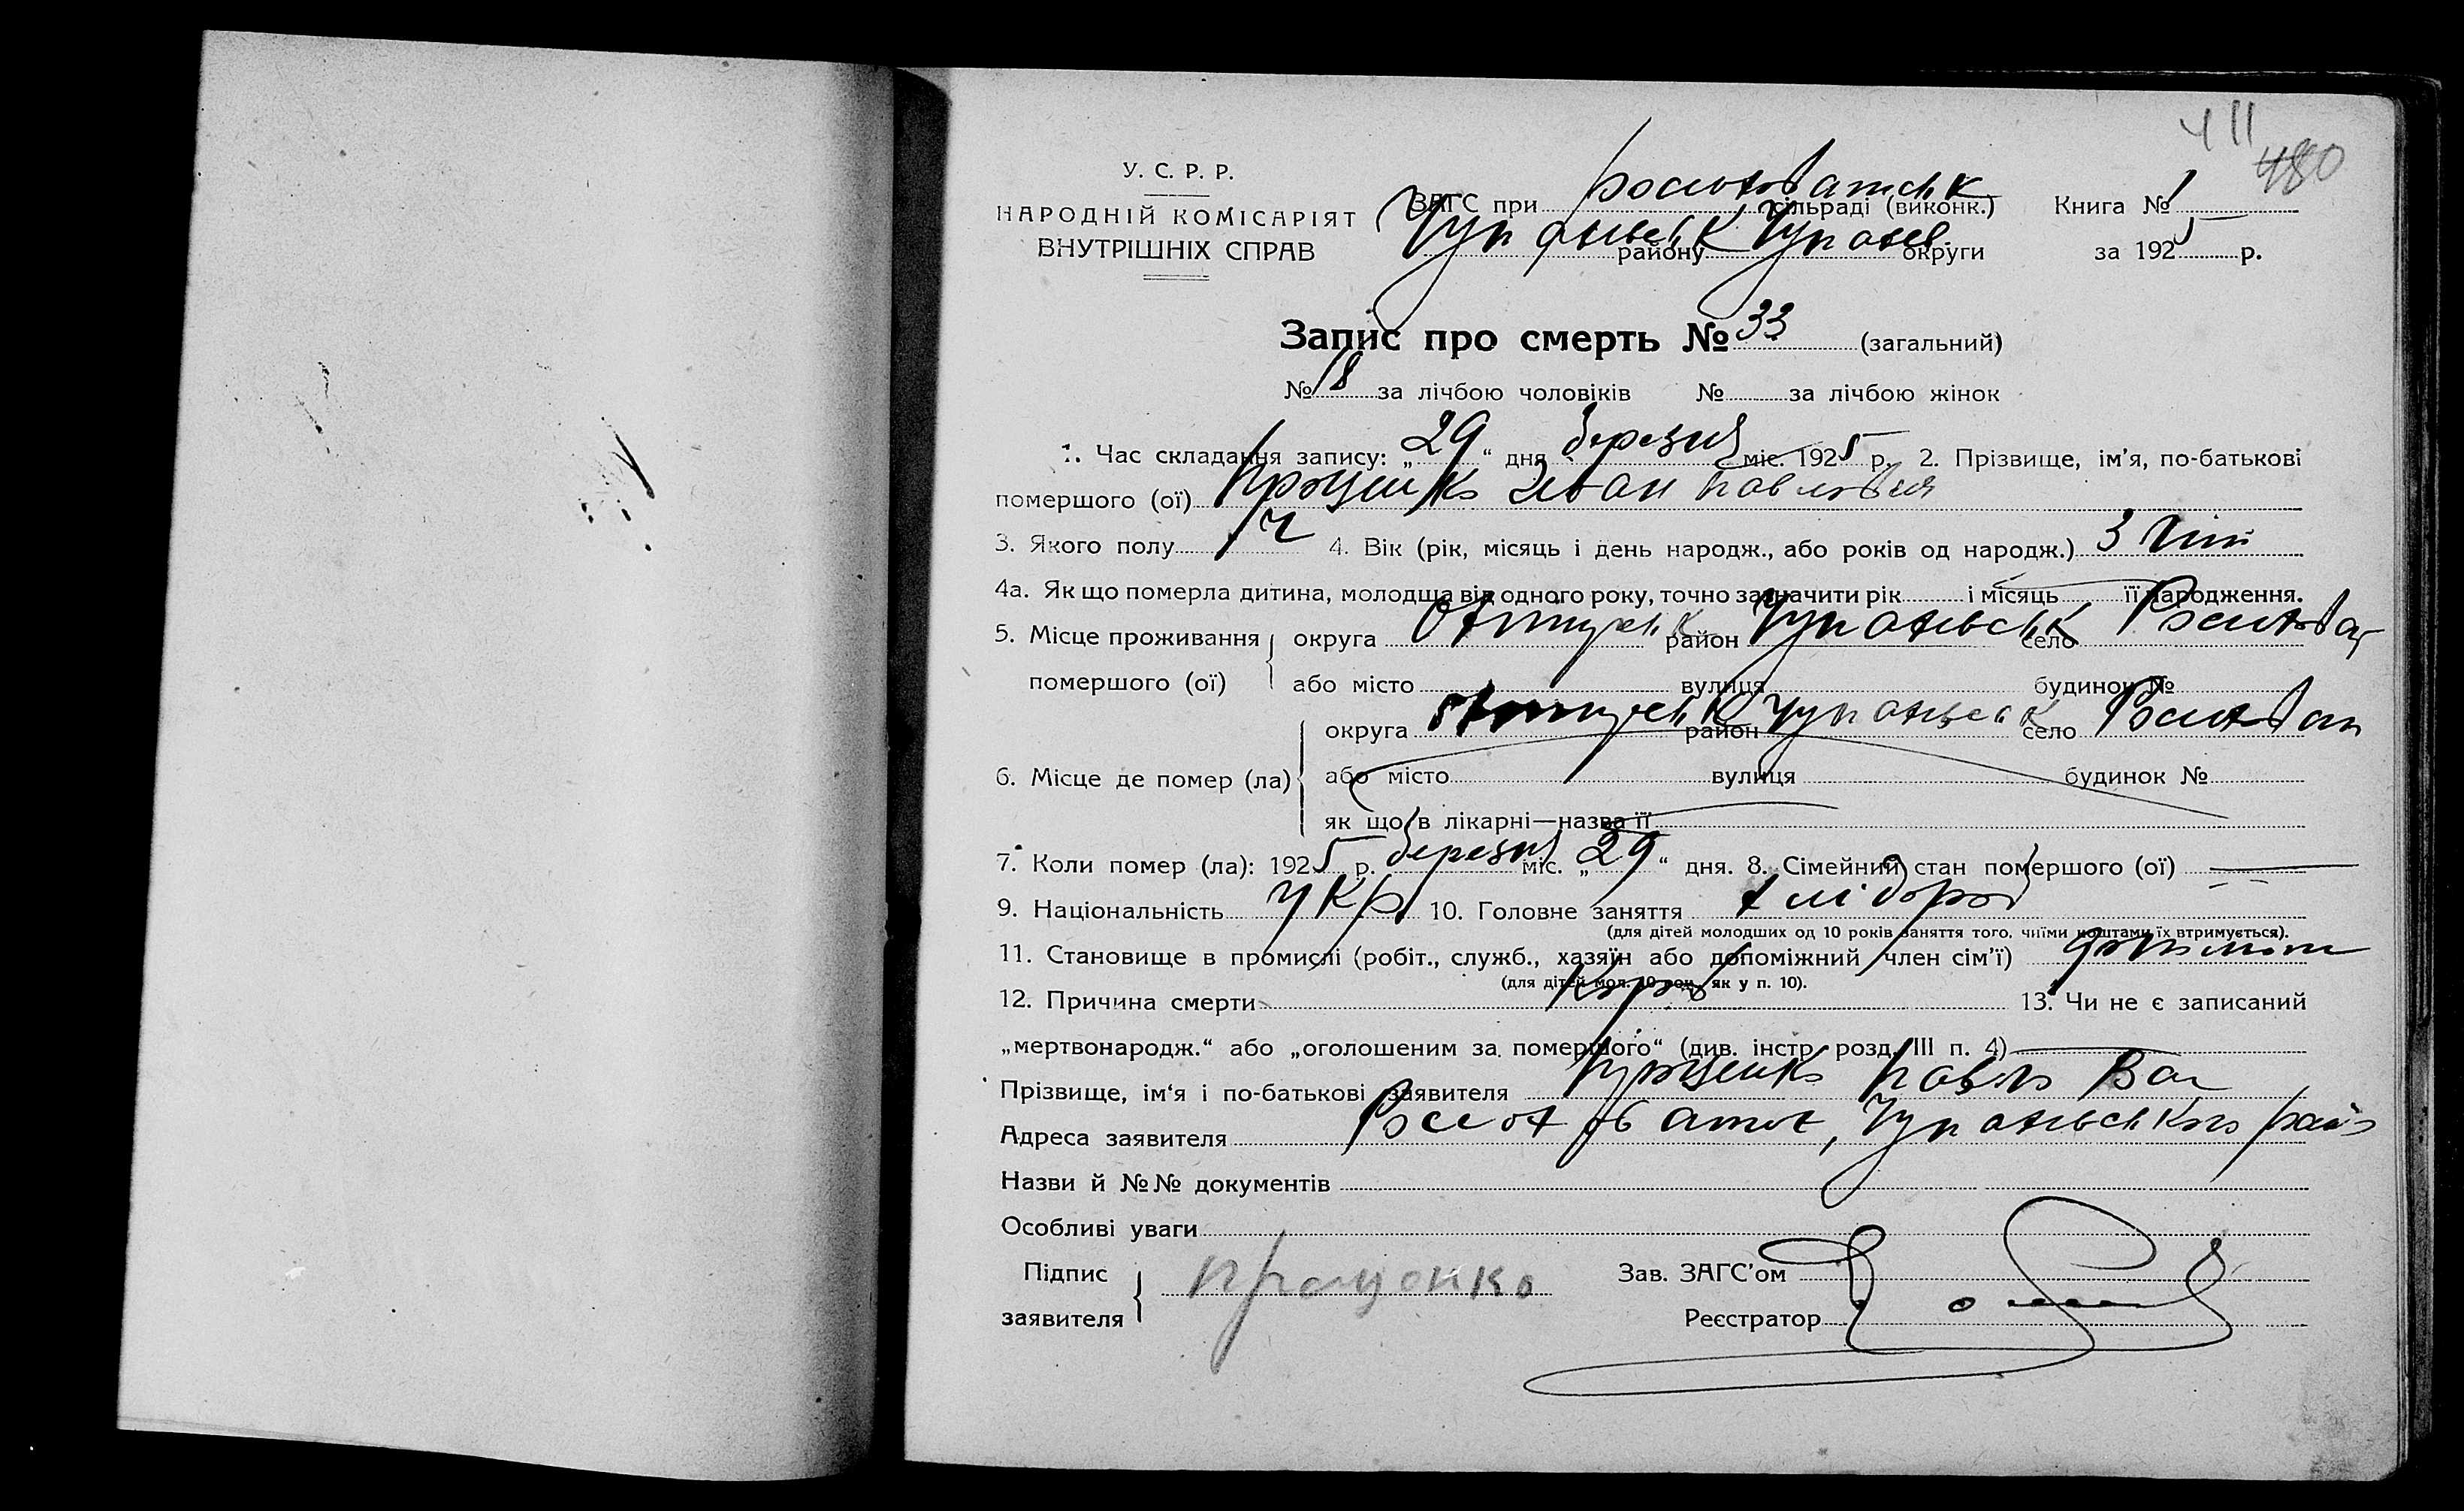 411
480
У. С. Р. Р.
НАРОДНІЙ КОМІСАРІЯТ
ВНУТРІШНІХ СПРАВ
ЗАГС при сільраді (виконк.)
району округи
Книга № 1
за 1925 р.
Запис про смерть № 33 (загальний)
№ 18 за лічбою чоловіків № за лічбою жінок
1. Час складання запису: „29“ дня березня міс. 1925 р. 2. Прізвище, ім'я, по-батькові
помершого (ої) Проценко Иван Павлович
3. Якого полу ч 4. Вік (рік, місяць і день народж., або років од народж.) 3 літ
4а. Як що померла дитина, молодша від одного року, точно зазначити рік і місяць її народження.
5. Місце проживання помершого (ої) округа район село
або місто вулиця будинок №
6. Місце де помер (ла) округа район село
або місто вулиця будинок №
як що в лікарні—назва її
7. Коли помер (ла): 1925 р. березня міс. „29“ дня. 8. Сімейний стан помершого (ої) —
9. Національність Укр 10. Головне заняття хлібороб
(для дітей молодших од 10 років заняття того, чиїми коштами їх втримується).
11. Становище в промислі (робіт., служб., хазяїн або допоміжний член сім'ї)
(для дітей мол. 10 рок. як у п. 10).
12. Причина смерти Кор 13. Чи не є записаний
„мертвонародж.“ або „оголошеним за помершого“ (див. інстр. розд. III п. 4) —
Прізвище, ім'я і по-батькові заявителя Проценко Павло Вас
Адреса заявителя
Назви й №№ документів
Особливі уваги
Підпис заявителя Проценко
Зав. ЗАГС'ом
Реєстратор